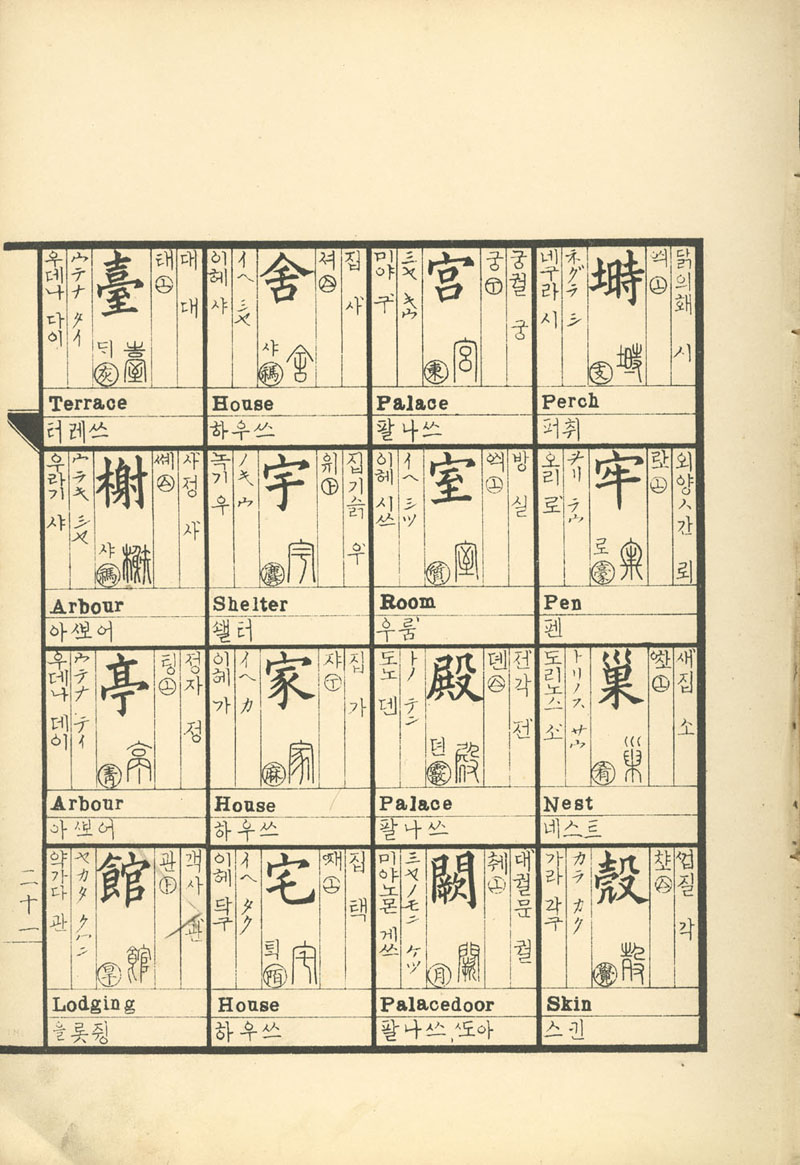 닭의홰 시
塒
支
ネグラ シ
네구라 시
Perch
퍼취
외양ㅅ간 뢰
란 上
牢
로 豪
ヲリ ラウ
오리 로
Pen
펜
새집 소
巢
肴
トリノス サウ
도리노스 소
Nest
네스트
껍질 각
殼
覺
カラ カク
가라 각구
Skin
스킨
궁궐 궁
궁 下
宮
東
ミヤ キウ
미야 구
Palace
팔나쓰
방 실
室
質
イヘ シツ
이헤 시쓰
Room
우룸
전각 전
뎬 去
殿
뎐 霰
トノ テン
도노 덴
Palace
팔나쓰
대궐문 궐
췌 上
闕
月
ミヤノモン ケツ
미야노몬 게쓰
Palacedoor
팔나쓰,ᄯᅩ아
집 사
셔 去
舍
샤 禡
イヘ シヤ
이헤 샤
House
하우쓰
집기슭 우
위 上
宇
麌
ノキ ウ
녹기 우
Shelter
쉘터
집 가
쟈 下
家
麻
イヘ カ
이헤 가
House
하우쓰
집 택
宅
陌
イヘ タク
이헤 닥구
House
하우쓰
대 대
태 上
臺
灰
ウテナ タイ
우데나 다이
Terrace
터레쓰
사정 사
쎼 去
榭
샤 禡
ウラキ シヤ
우라기 샤
Arbour
아ᄲᅩ어
정자 정
팅 上
亭
靑
ウテナ テイ
우데나 데이
Arbour
아ᄲᅩ어
객사 관
관 上
館
旱
ヤカタ クハン
야가다 관
Lodging
을롯찡
二十一